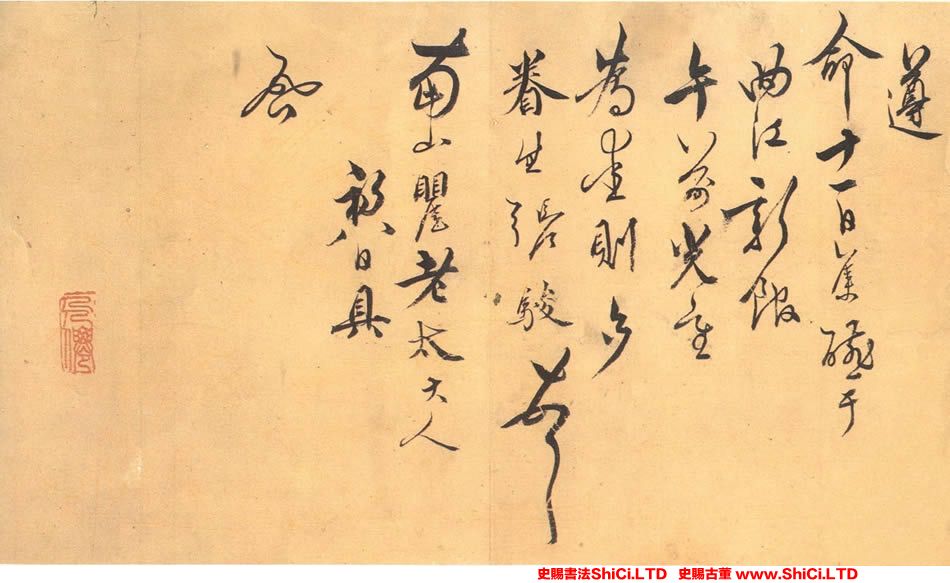 遵
命十一日集醵于
曲江新館
午前光
為愛則多
眷生張駿
南山瞿老太大人
初八日具
史賜書法ShiCi.LTD 史賜古董 www.ShiCi.LTD